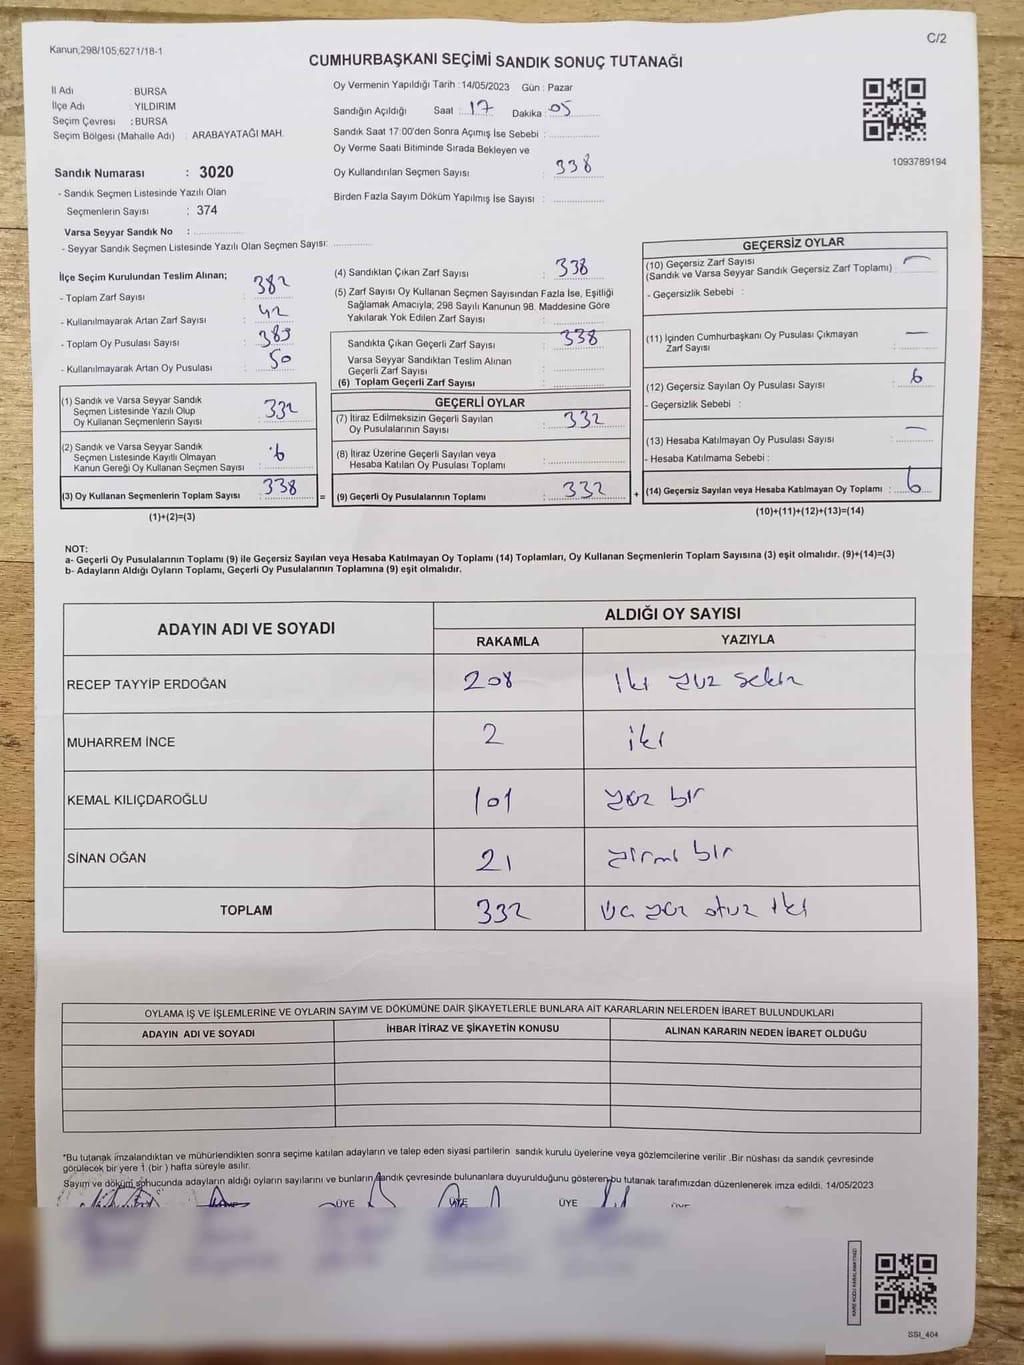 Kanun,298/105,6271/18-1
C/2
CUMHURBAŞKANI SEÇİMİ SANDIK SONUÇ TUTANAĞI
İl Adı : BURSA
İlçe Adı : YILDIRIM
Seçim Çevresi : BURSA
Seçim Bölgesi (Mahalle Adı) : ARABAYATAĞI MAH.
Sandık Numarası : 3020
- Sandık Seçmen Listesinde Yazılı Olan
Seçmenlerin Sayısı : 374
Varsa Seyyar Sandık No :
- Seyyar Sandık Seçmen Listesinde Yazılı Olan Seçmen Sayısı:
Oy Vermenin Yapıldığı Tarih : 14/05/2023 Gün : Pazar
Sandığın Açıldığı Saat : 17 Dakika : 05
Sandık Saat 17:00'den Sonra Açımış İse Sebebi :
Oy Verme Saati Bitiminde Sırada Bekleyen ve
Oy Kullandırılan Seçmen Sayısı : 338
Birden Fazla Sayım Döküm Yapılmış İse Sayısı :
1093789194
İlçe Seçim Kurulundan Teslim Alınan;
- Toplam Zarf Sayısı : 382
- Kullanılmayarak Artan Zarf Sayısı : 42
- Toplam Oy Pusulası Sayısı : 389
- Kullanılmayarak Artan Oy Pusulası : 50
(1) Sandık ve Varsa Seyyar Sandık
Seçmen Listesinde Yazılı Olup
Oy Kullanan Seçmenlerin Sayısı : 332
(2) Sandık ve Varsa Seyyar Sandık
Seçmen Listesinde Kayıtlı Olmayan
Kanun Gereği Oy Kullanan Seçmen Sayısı : 6
(3) Oy Kullanan Seçmenlerin Toplam Sayısı : 338
(1)+(2)=(3)
(4) Sandıktan Çıkan Zarf Sayısı : 338
(5) Zarf Sayısı Oy Kullanan Seçmen Sayısından Fazla İse, Eşitliği
Sağlamak Amacıyla; 298 Sayılı Kanunun 98. Maddesine Göre
Yakılarak Yok Edilen Zarf Sayısı :
Sandıkta Çıkan Geçerli Zarf Sayısı : 338
Varsa Seyyar Sandıktan Teslim Alınan
Geçerli Zarf Sayısı :
(6) Toplam Geçerli Zarf Sayısı :
GEÇERLİ OYLAR
(7) İtiraz Edilmeksizin Geçerli Sayılan
Oy Pusulalarının Sayısı : 332
(8) İtiraz Üzerine Geçerli Sayılan veya
Hesaba Katılan Oy Pusulası Toplamı :
= (9) Geçerli Oy Pusulalarının Toplamı : 332
GEÇERSİZ OYLAR
(10) Geçersiz Zarf Sayısı
(Sandık ve Varsa Seyyar Sandık Geçersiz Zarf Toplamı) : —
- Geçersizlik Sebebi :
(11) İçinden Cumhurbaşkanı Oy Pusulası Çıkmayan
Zarf Sayısı : —
(12) Geçersiz Sayılan Oy Pusulası Sayısı : 6
- Geçersizlik Sebebi :
(13) Hesaba Katılmayan Oy Pusulası Sayısı : —
- Hesaba Katılmama Sebebi :
+ (14) Geçersiz Sayılan veya Hesaba Katılmayan Oy Toplamı : 6
(10)+(11)+(12)+(13)=(14)
NOT:
a- Geçerli Oy Pusulalarının Toplamı (9) ile Geçersiz Sayılan veya Hesaba Katılmayan Oy Toplamı (14) Toplamları, Oy Kullanan Seçmenlerin Toplam Sayısına (3) eşit olmalıdır. (9)+(14)=(3)
b- Adayların Aldığı Oyların Toplamı, Geçerli Oy Pusulalarının Toplamına (9) eşit olmalıdır.
ADAYIN ADI VE SOYADI
ALDIĞI OY SAYISI
RAKAMLA YAZIYLA
RECEP TAYYİP ERDOĞAN 208 iki yüz sekiz
MUHARREM İNCE 2 iki
KEMAL KILIÇDAROĞLU 101 yüz bir
SİNAN OĞAN 21 yirmi bir
TOPLAM 332 üç yüz otuz iki
OYLAMA İŞ VE İŞLEMLERİNE VE OYLARIN SAYIM VE DÖKÜMÜNE DAİR ŞİKAYETLERLE BUNLARA AİT KARARLARIN NELERDEN İBARET BULUNDUKLARI
ADAYIN ADI VE SOYADI İHBAR İTİRAZ VE ŞİKAYETİN KONUSU ALINAN KARARIN NEDEN İBARET OLDUĞU
*Bu tutanak imzalandıktan ve mühürlendikten sonra seçime katılan adayların ve talep eden siyasi partilerin sandık kurulu üyelerine veya gözlemcilerine verilir .Bir nüshası da sandık çevresinde
görülecek bir yere 1 (bir ) hafta süreyle asılır.
Sayım ve döküm sonucunda adayların aldığı oyların sayılarını ve bunların sandık çevresinde bulunanlara duyurulduğunu gösteren bu tutanak tarafımızdan düzenlenerek imza edildi. 14/05/2023
ÜYE ÜYE ÜYE ÜYE
SSI_404